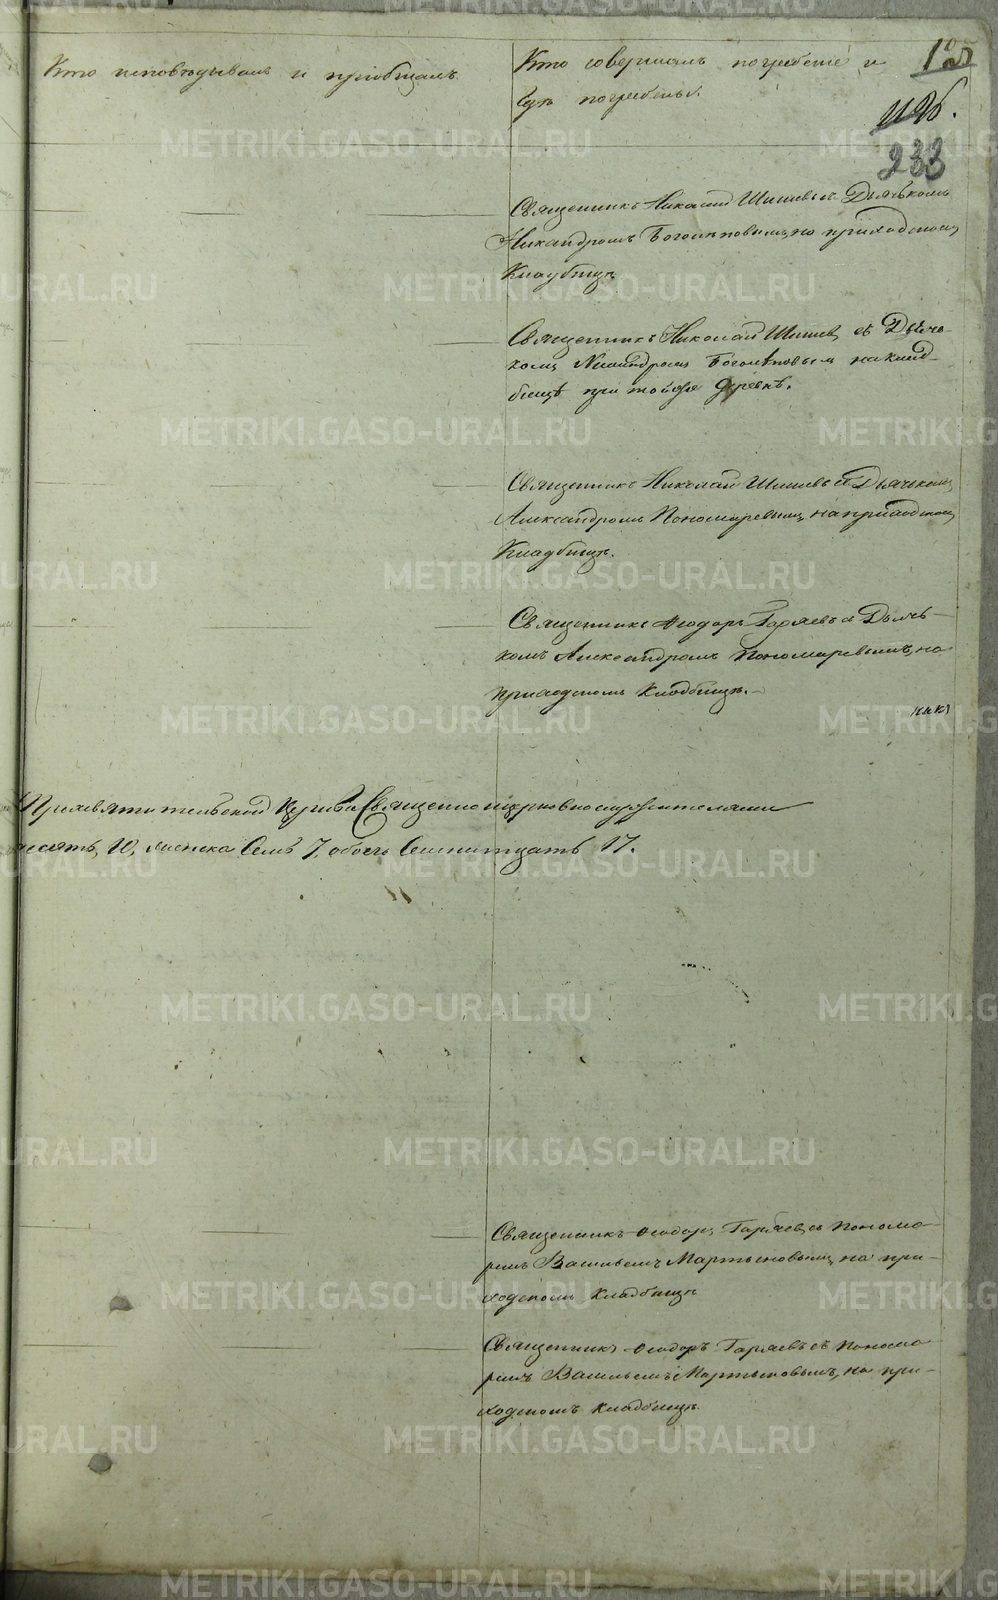 Кто исповѣдывалъ и приобщалъ
Кто совершалъ погребенiе и
гдѣ погребены.
125
233
Священникъ Николай Шишевъ съ Дьячькомъ
Никандромъ Боголѣповымъ, на приходскомъ
Кладбищѣ
Священникъ Николай Шишевъ съ Дьячь-
комъ Никандромъ Боголѣповымъ на клад-
бищѣ при той же деревнѣ.
Священникъ Николай Шишевъ съ Дьячькомъ
Александромъ Пономаревымъ, на приходскомъ
Кладбищѣ.
Священникъ Ѳеодоръ Гаряевъ съ Дьячь-
комъ Александромъ Пономаревымъ, на
приходскомъ Кладбищѣ.
Священно церковнослужителями
десять, 10, женска Семь 7, обоего Семнатцать 17.
Священникъ Ѳеодоръ Гаряевъ съ Понома-
ремъ Васильемъ Мартыновымъ, на при-
ходскомъ Кладбищѣ
Священникъ Ѳеодоръ Гаряевъ съ Понома-
ремъ Васильемъ Мартыновымъ, на при-
ходскомъ Кладбищѣ.
METRIKI.GASO-URAL.RU